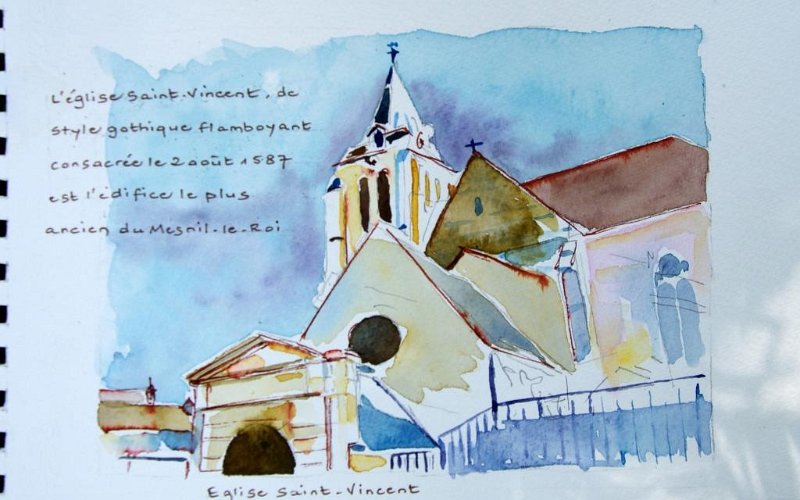 L'église Saint-Vincent, de
style gothique flamboyant
consacrée le 2 août 1587
est l'édifice le plus
ancien du Mesnil-le-Roi
Eglise Saint-Vincent